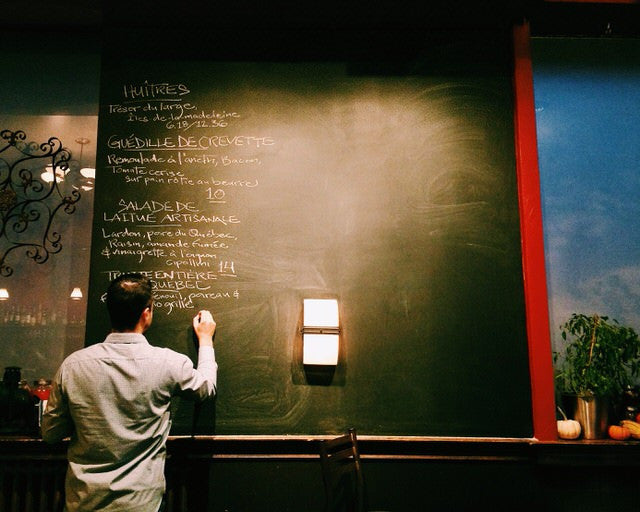 HUÎTRES
Trésor du large,
Îles de la madeleine
6.18/12.36
GUÉDILLE DE CREVETTE
Remoulade à l'aneth, Bacon,
Tomate cerise
sur pain rôti au beurre
10
SALADE DE
LAITUE ARTISANALE
Lardon, poire du Québec,
Raisin, amande fumée,
& vinaigrette à l'oignon
cipollini 14
TRUITE ENTIÈRE
QUEBEC
fenouil, poireau &
grillé